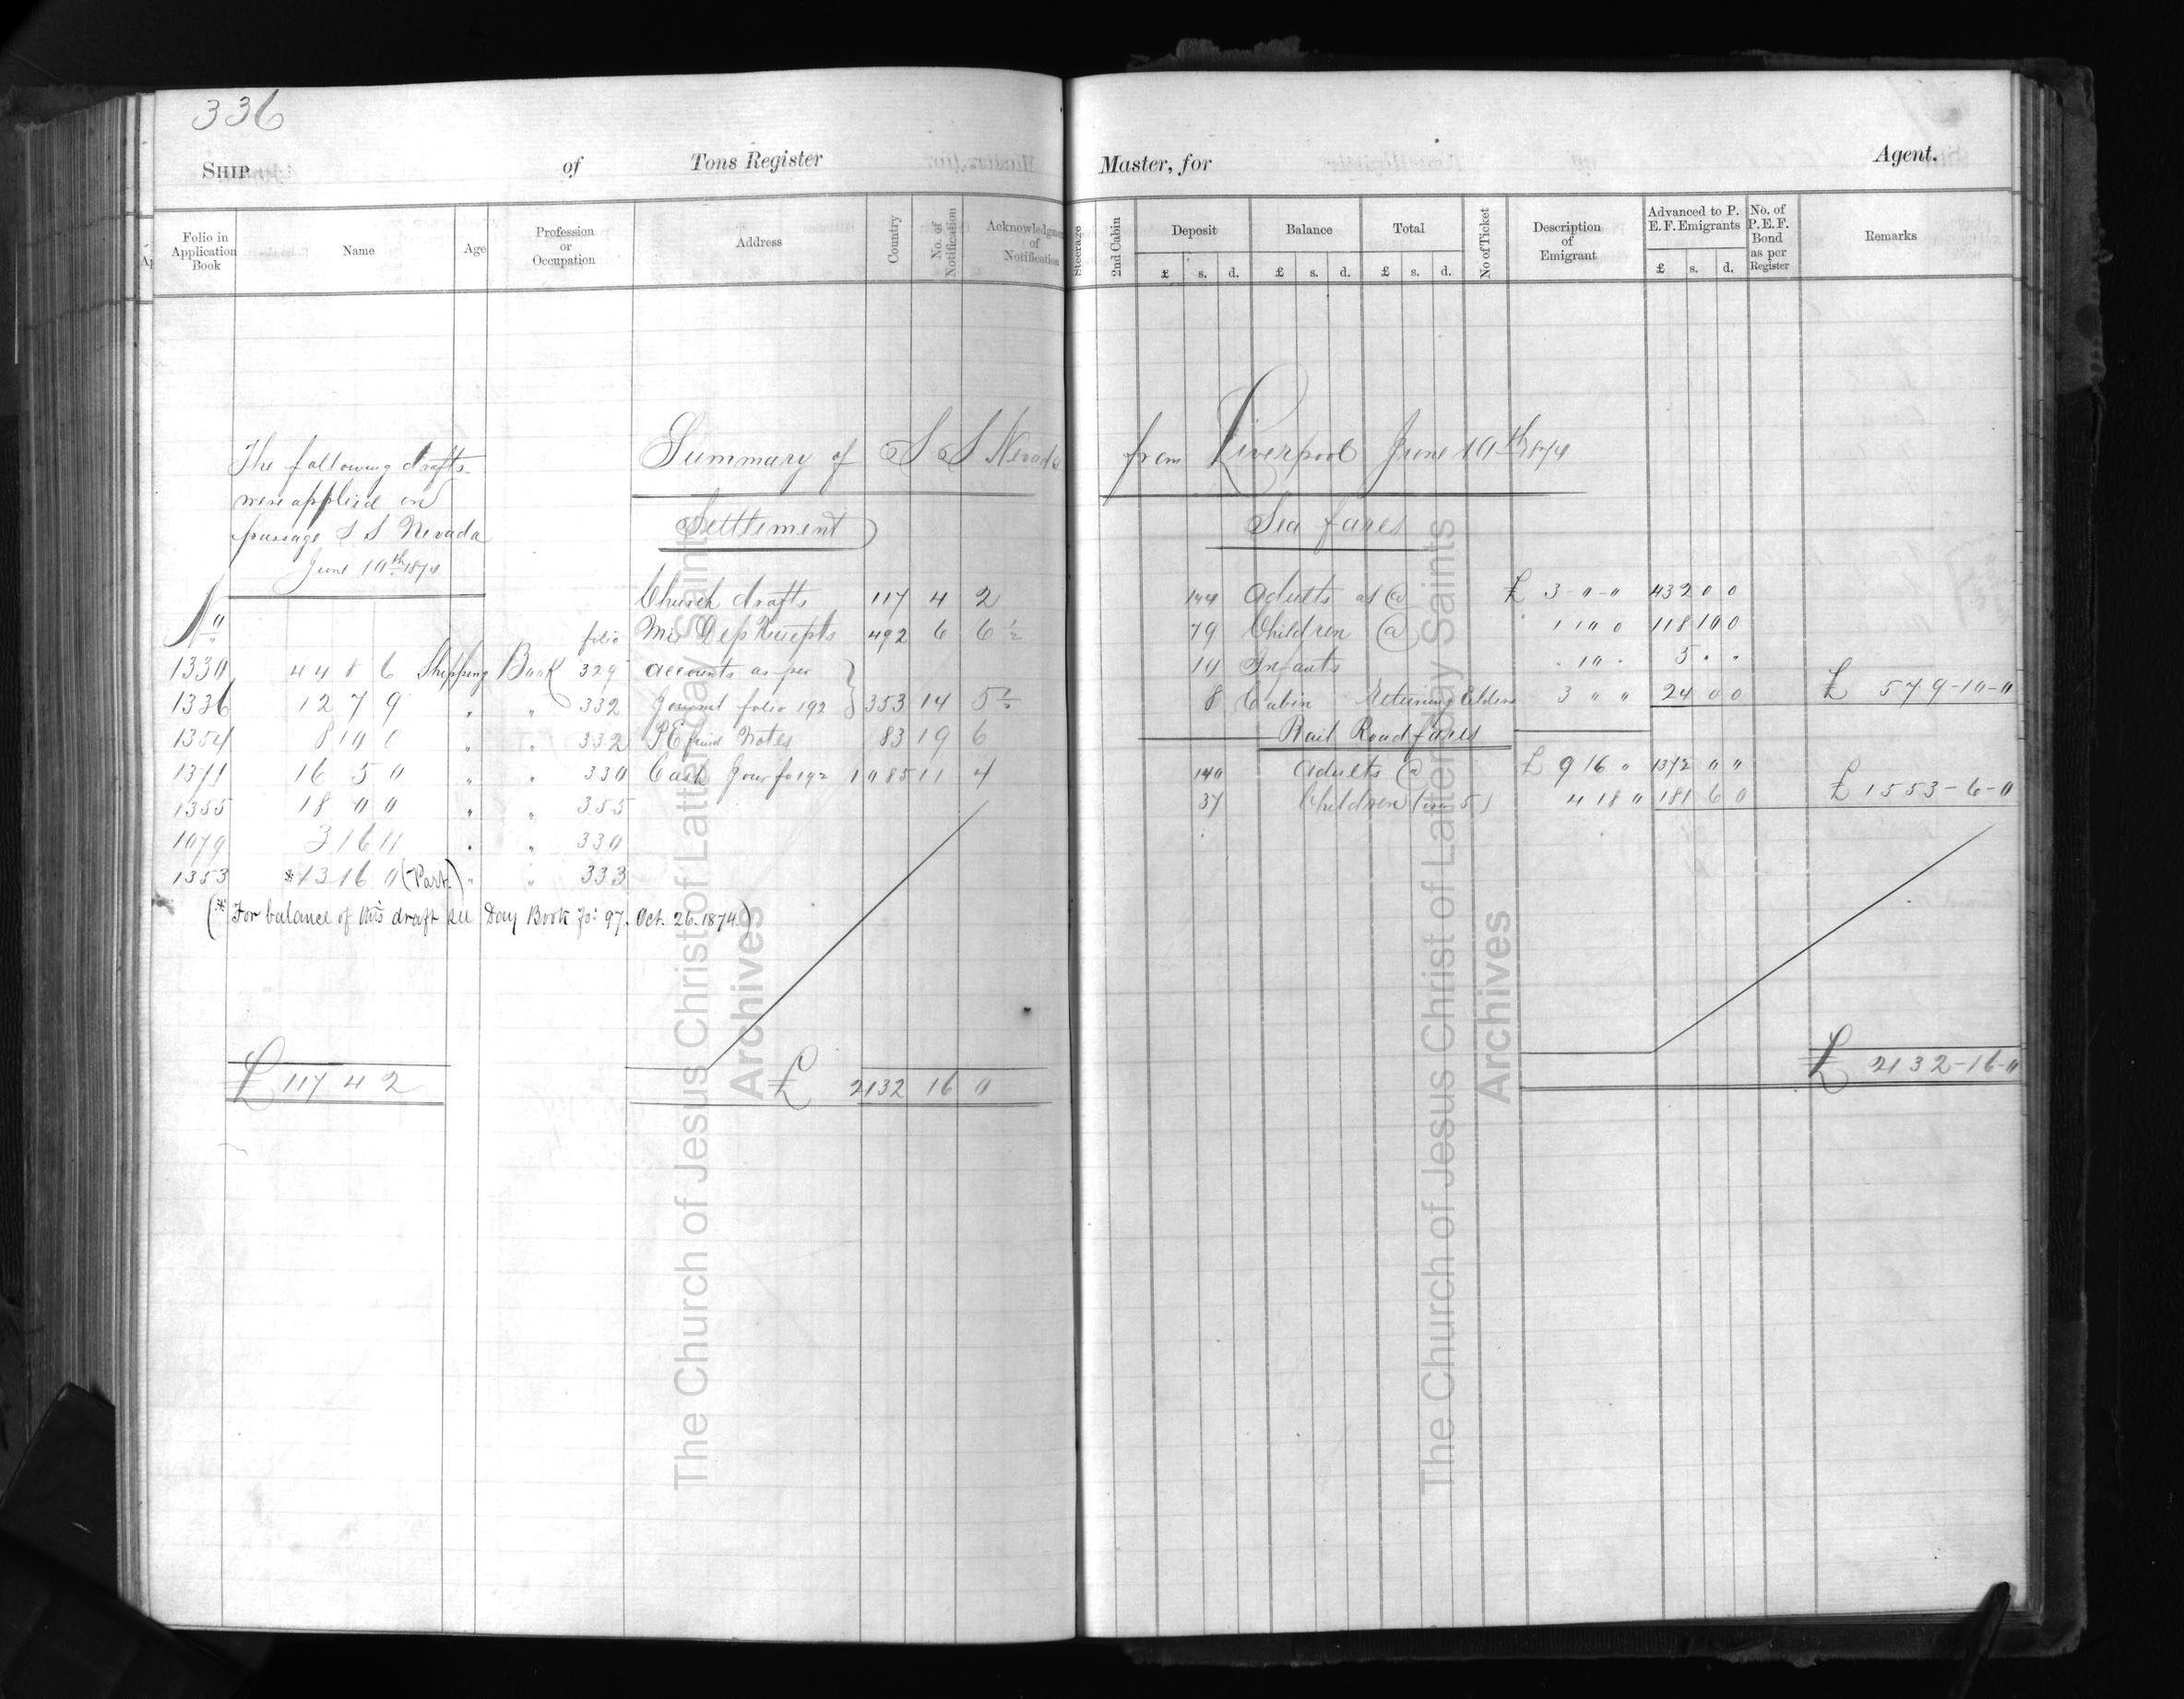 336
SHIP of Tons Register Master, for Agent.
Folio in Application Book Name Age Profession or Occupation Address Country No. of Notification Acknowledgment of Notification Steerage 2nd Cabin Deposit Balance Total No of Ticket Description of Emigrant Advanced to P. E. F. Emigrants No. of P.E.F. Bond as per Register Remarks
£ s. d. £ s. d. £ s. d. £ s. d.
Summary of S S Nevada from Liverpool June 10th 1874
The following drafts
were applied on
passage S S Nevada
June 10th 1874
No
1330 44 8 6 Shipping Book folio 329
1336 12 7 9 " " 332
1354 8 10 0 " " 332
1371 16 5 0 " " 330
1355 18 0 0 " " 335
1079 3 16 11 " " 330
1353 *13 16 0 (Part.) " " 333
(* For balance of this draft see Day Book fo: 97. Oct. 26. 1874.)
£ 117 4 2
Settlement
Church drafts 117 4 2
Dep Receipts 492 6 6 1/2
accounts as per
Journal folio 192 } 353 14 5 1/2
P E Fund Notes 83 19 6
Cash Jour fo 192 1085 11 4
£ 2132 16 0
Sea fares
144 Adults at @ £ 3 - " - " 432 0 0
79 Children @ 1 10 0 118 10 0
10 Infants " 10 " 5 " "
8 Cabin Returning Elders 3 " " 24 0 0 £ 579-10-0
Rail Road fares
140 Adults @ £ 9 16 " 1372 " "
37 Children (over 5) 4 18 0 181 6 0 £ 1553-6-0
£ 2132-16-0
The Church of Jesus Christ of Latter-day Saints
Archives
The Church of Jesus Christ of Latter-day Saints
Archives